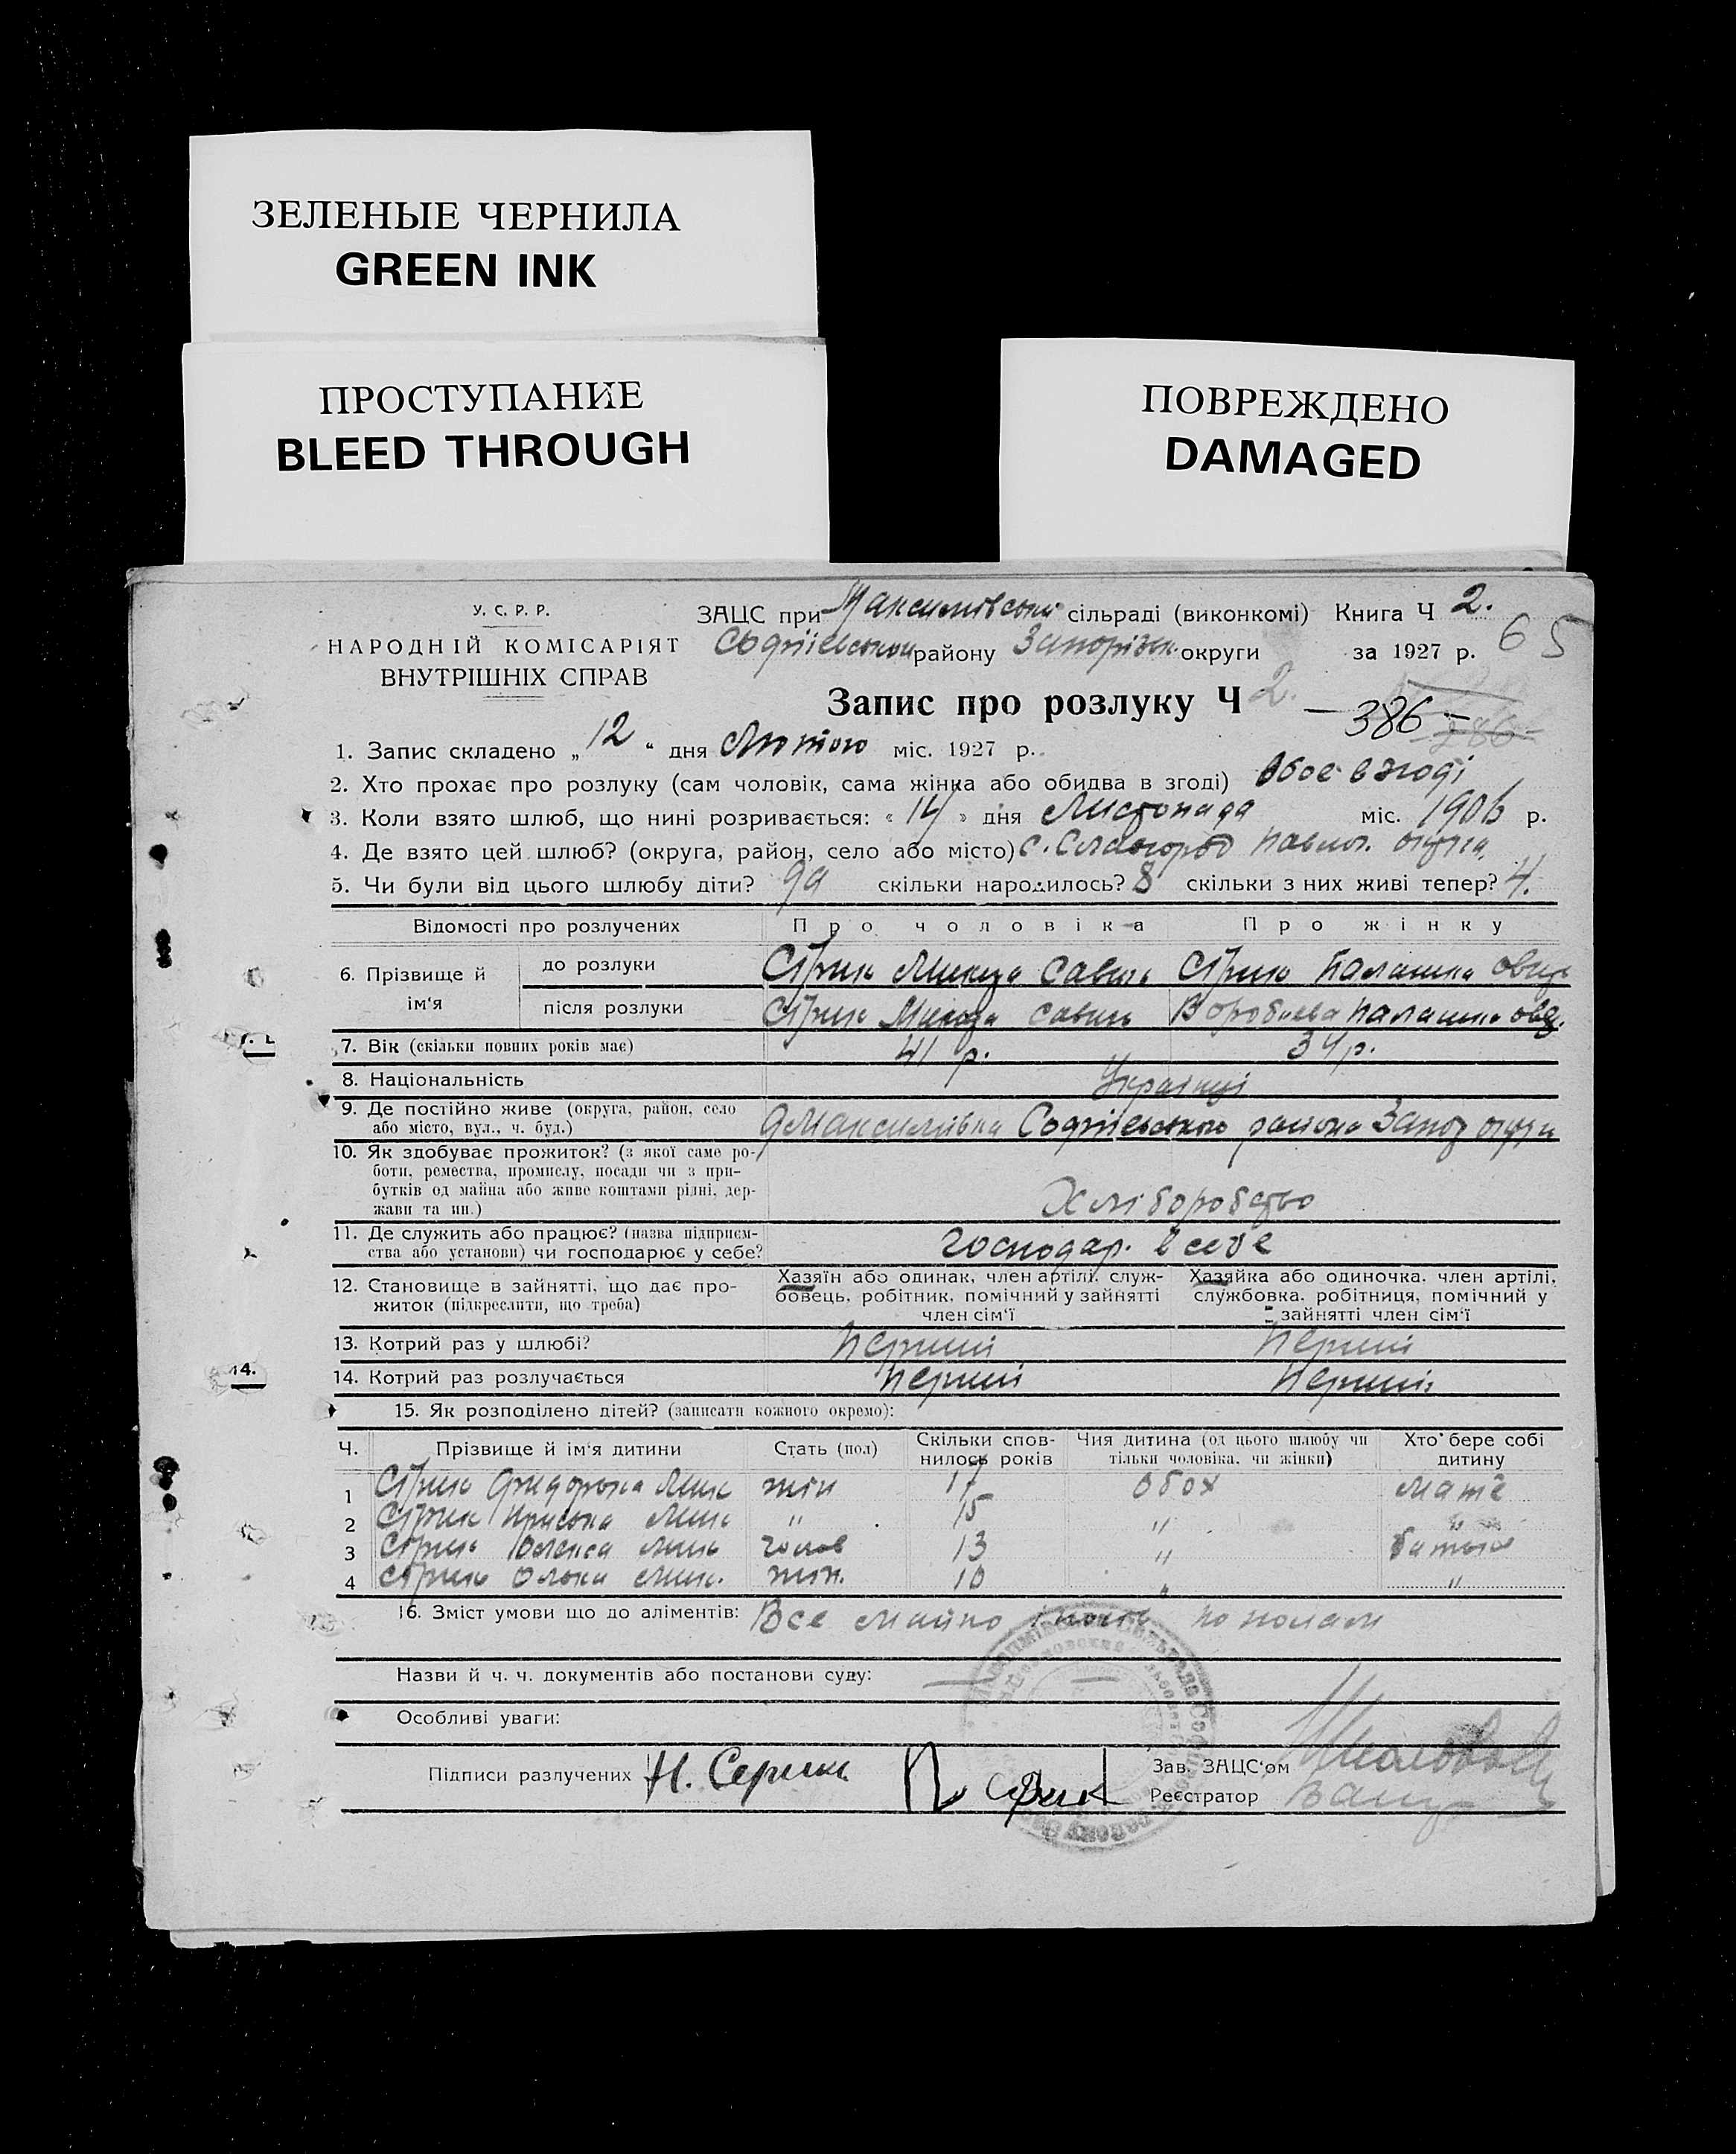 ЗЕЛЕНЫЕ ЧЕРНИЛА
GREEN INK
ПРОСТУПАНИЕ
BLEED THROUGH
ПОВРЕЖДЕНО
DAMAGED
У. С. Р. Р.
НАРОДНІЙ КОМІСАРІЯТ
ВНУТРІШНІХ СПРАВ
ЗАЦС при Максимівській сільраді (виконкомі) Книга Ч 2.
Софіївськом району Запорізьк. округи за 1927 р. 65
Запис про розлуку Ч 2.
— 386 —
1. Запис складено „ 12 “ дня Лютого міс. 1927 р.
2. Хто прохає про розлуку (сам чоловік, сама жінка або обидва в згоді) Обоє в згоді
3. Коли взято шлюб, що нині розривається: « 14 » дня Листопада міс. 1906 р.
4. Де взято цей шлюб? (округа, район, село або місто) с. Славгород Павлог.
5. Чи були від цього шлюбу діти? да скільки народилось? 8 скільки з них живі тепер? 4.
Відомості про розлучених Про чоловіка Про жінку
6. Прізвище й ім‘я до розлуки Стрик Микита Савич Стрик Палашка
після розлуки Стрик Микита Савич Воробьева Палашка
7. Вік (скільки повних років має) 41 р. 34 р.
8. Національність Українці
9. Де постійно живе (округа, район, село
або місто, вул., ч. буд.) Максимівка Софіївського района Запор округи
10. Як здобуває прожиток? (з якої саме ро-
боти, ремества, промислу, посади чи з при-
бутків од майна або живе коштами рідні, дер-
жави та ин.) Хліборобство
11. Де служить або працює? (назва підприєм-
ства або установи) чи господарює у себе? господар. в себе
12. Становище в зайнятті, що дає про-
житок (підкреслити, що треба)
Хазяїн або одинак, член артілі, служ-
бовець, робітник, помічний у зайнятті
член сім‘ї
Хазяйка або одиночка, член артілі,
службовка, робітниця, помічний у
зайнятті член сім‘ї
13. Котрий раз у шлюбі? перший перший
14. Котрий раз розлучається перший перший
14.
15. Як розподілено дітей? (записати кожного окремо):
Ч. Прізвище й ім‘я дитини Стать (пол) Скільки спов-
нилось років Чия дитина (од цього шлюбу чи
тільки чоловіка, чи жінки) Хто бере собі
дитину
1 Стрик Мик жін 17 обох мате
2 Стрик Мик " 15 " "
3 Стрик Мик чолов 13 " батько
4 Стрик Мик. жін. 10 " "
16. Зміст умови що до аліментів: Все майно по полам
Назви й ч. ч. документів або постанови суду: —
Особливі уваги:
Підписи розлучених Н. Серик П. Стрик
Зав. ЗАЦС‘ом
Реєстратор